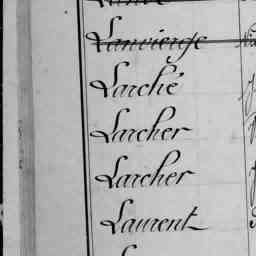 Lanvierge
Larché
Larcher
Larcher
Laurent